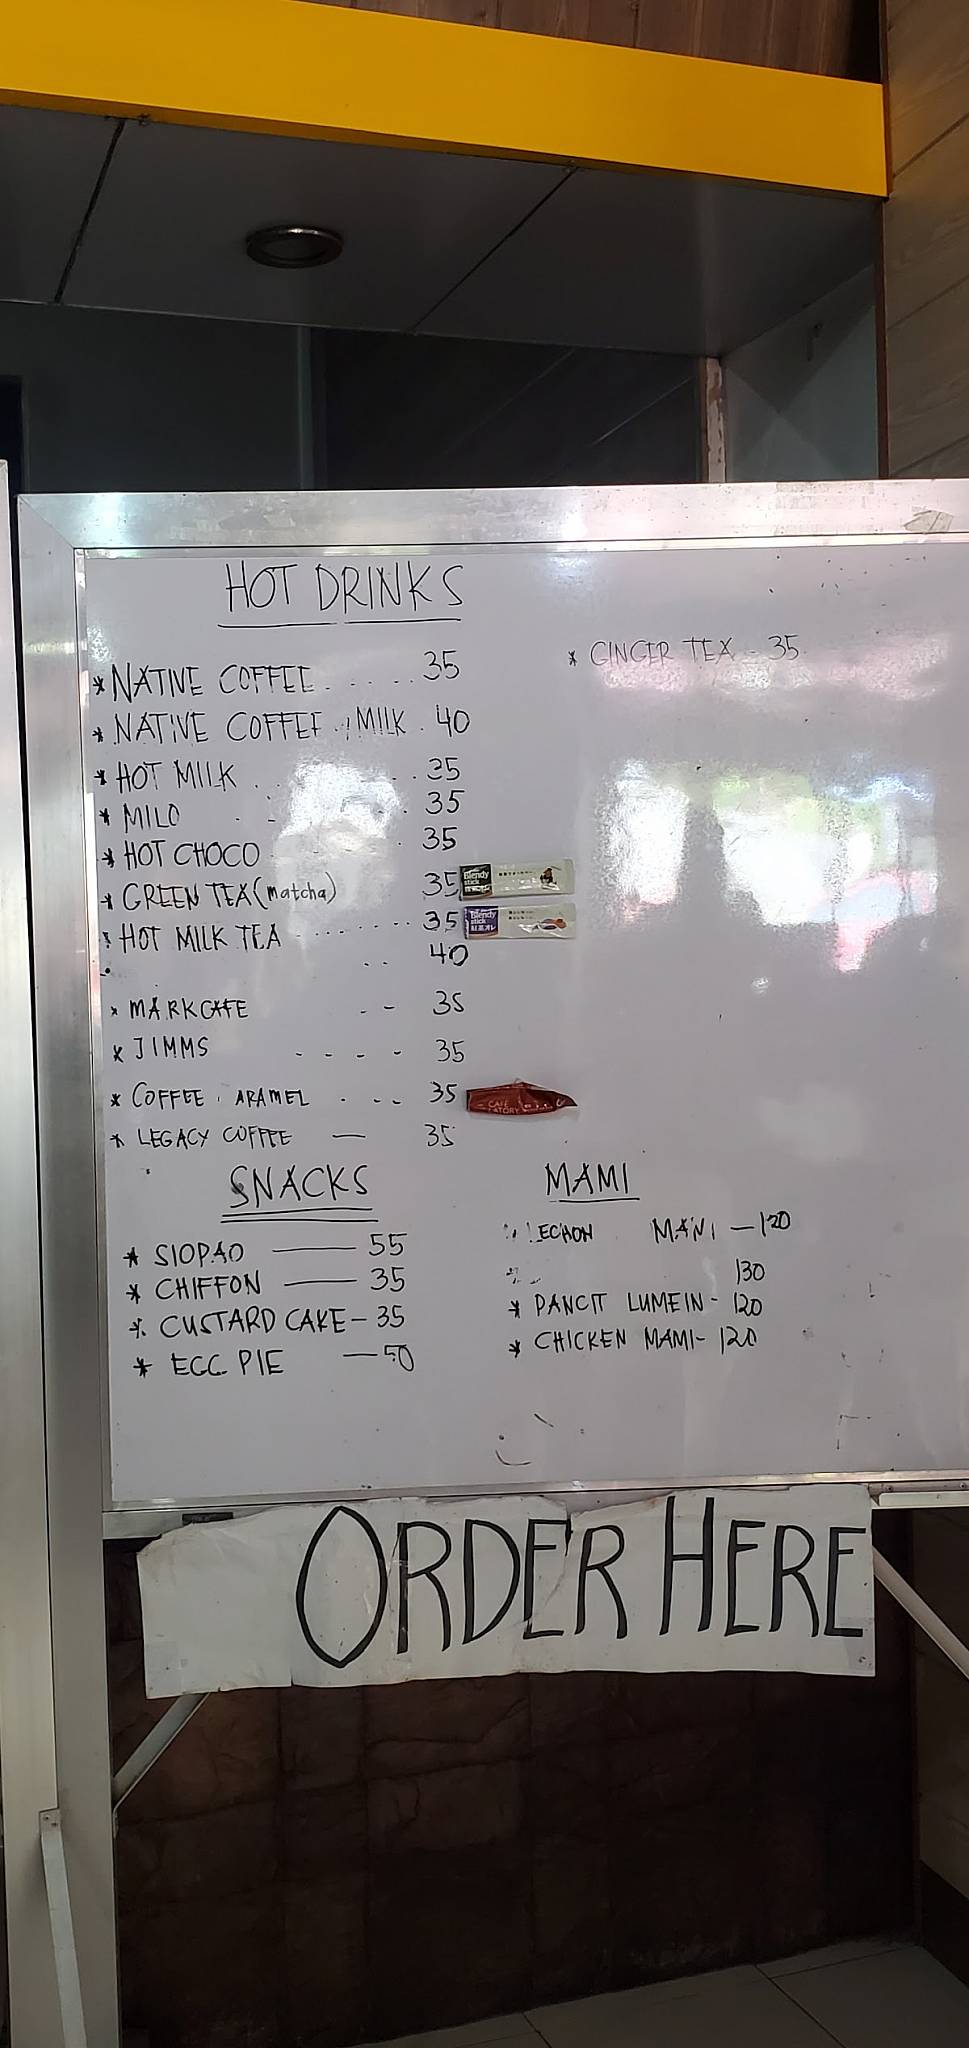 HOT DRINKS
* NATIVE COFFEE ..... 35
* NATIVE COFFEE . / MILK . 40
* HOT MILK ..... 35
* MILO ... 35
* HOT CHOCO . 35
* GREEN TEA (matcha) 35
Blendy
stick
* HOT MILK TEA ....... 35
Blendy
stick
紅茶オレ
.. 40
* MARKCAFE - - 35
* JIMMS - - - - 35
* COFFEE . ARAMEL . . - - 35
CAFE
* LEGACY COFFEE — 35
* GINGER TEA - 35
SNACKS
* SIOPAO — 55
* CHIFFON — 35
* CUSTARD CAKE - 35
* EGG PIE — 50
MAMI
LECHON MAMI — 120
130
* PANCIT LUMEIN - 120
* CHICKEN MAMI - 120
ORDER HERE